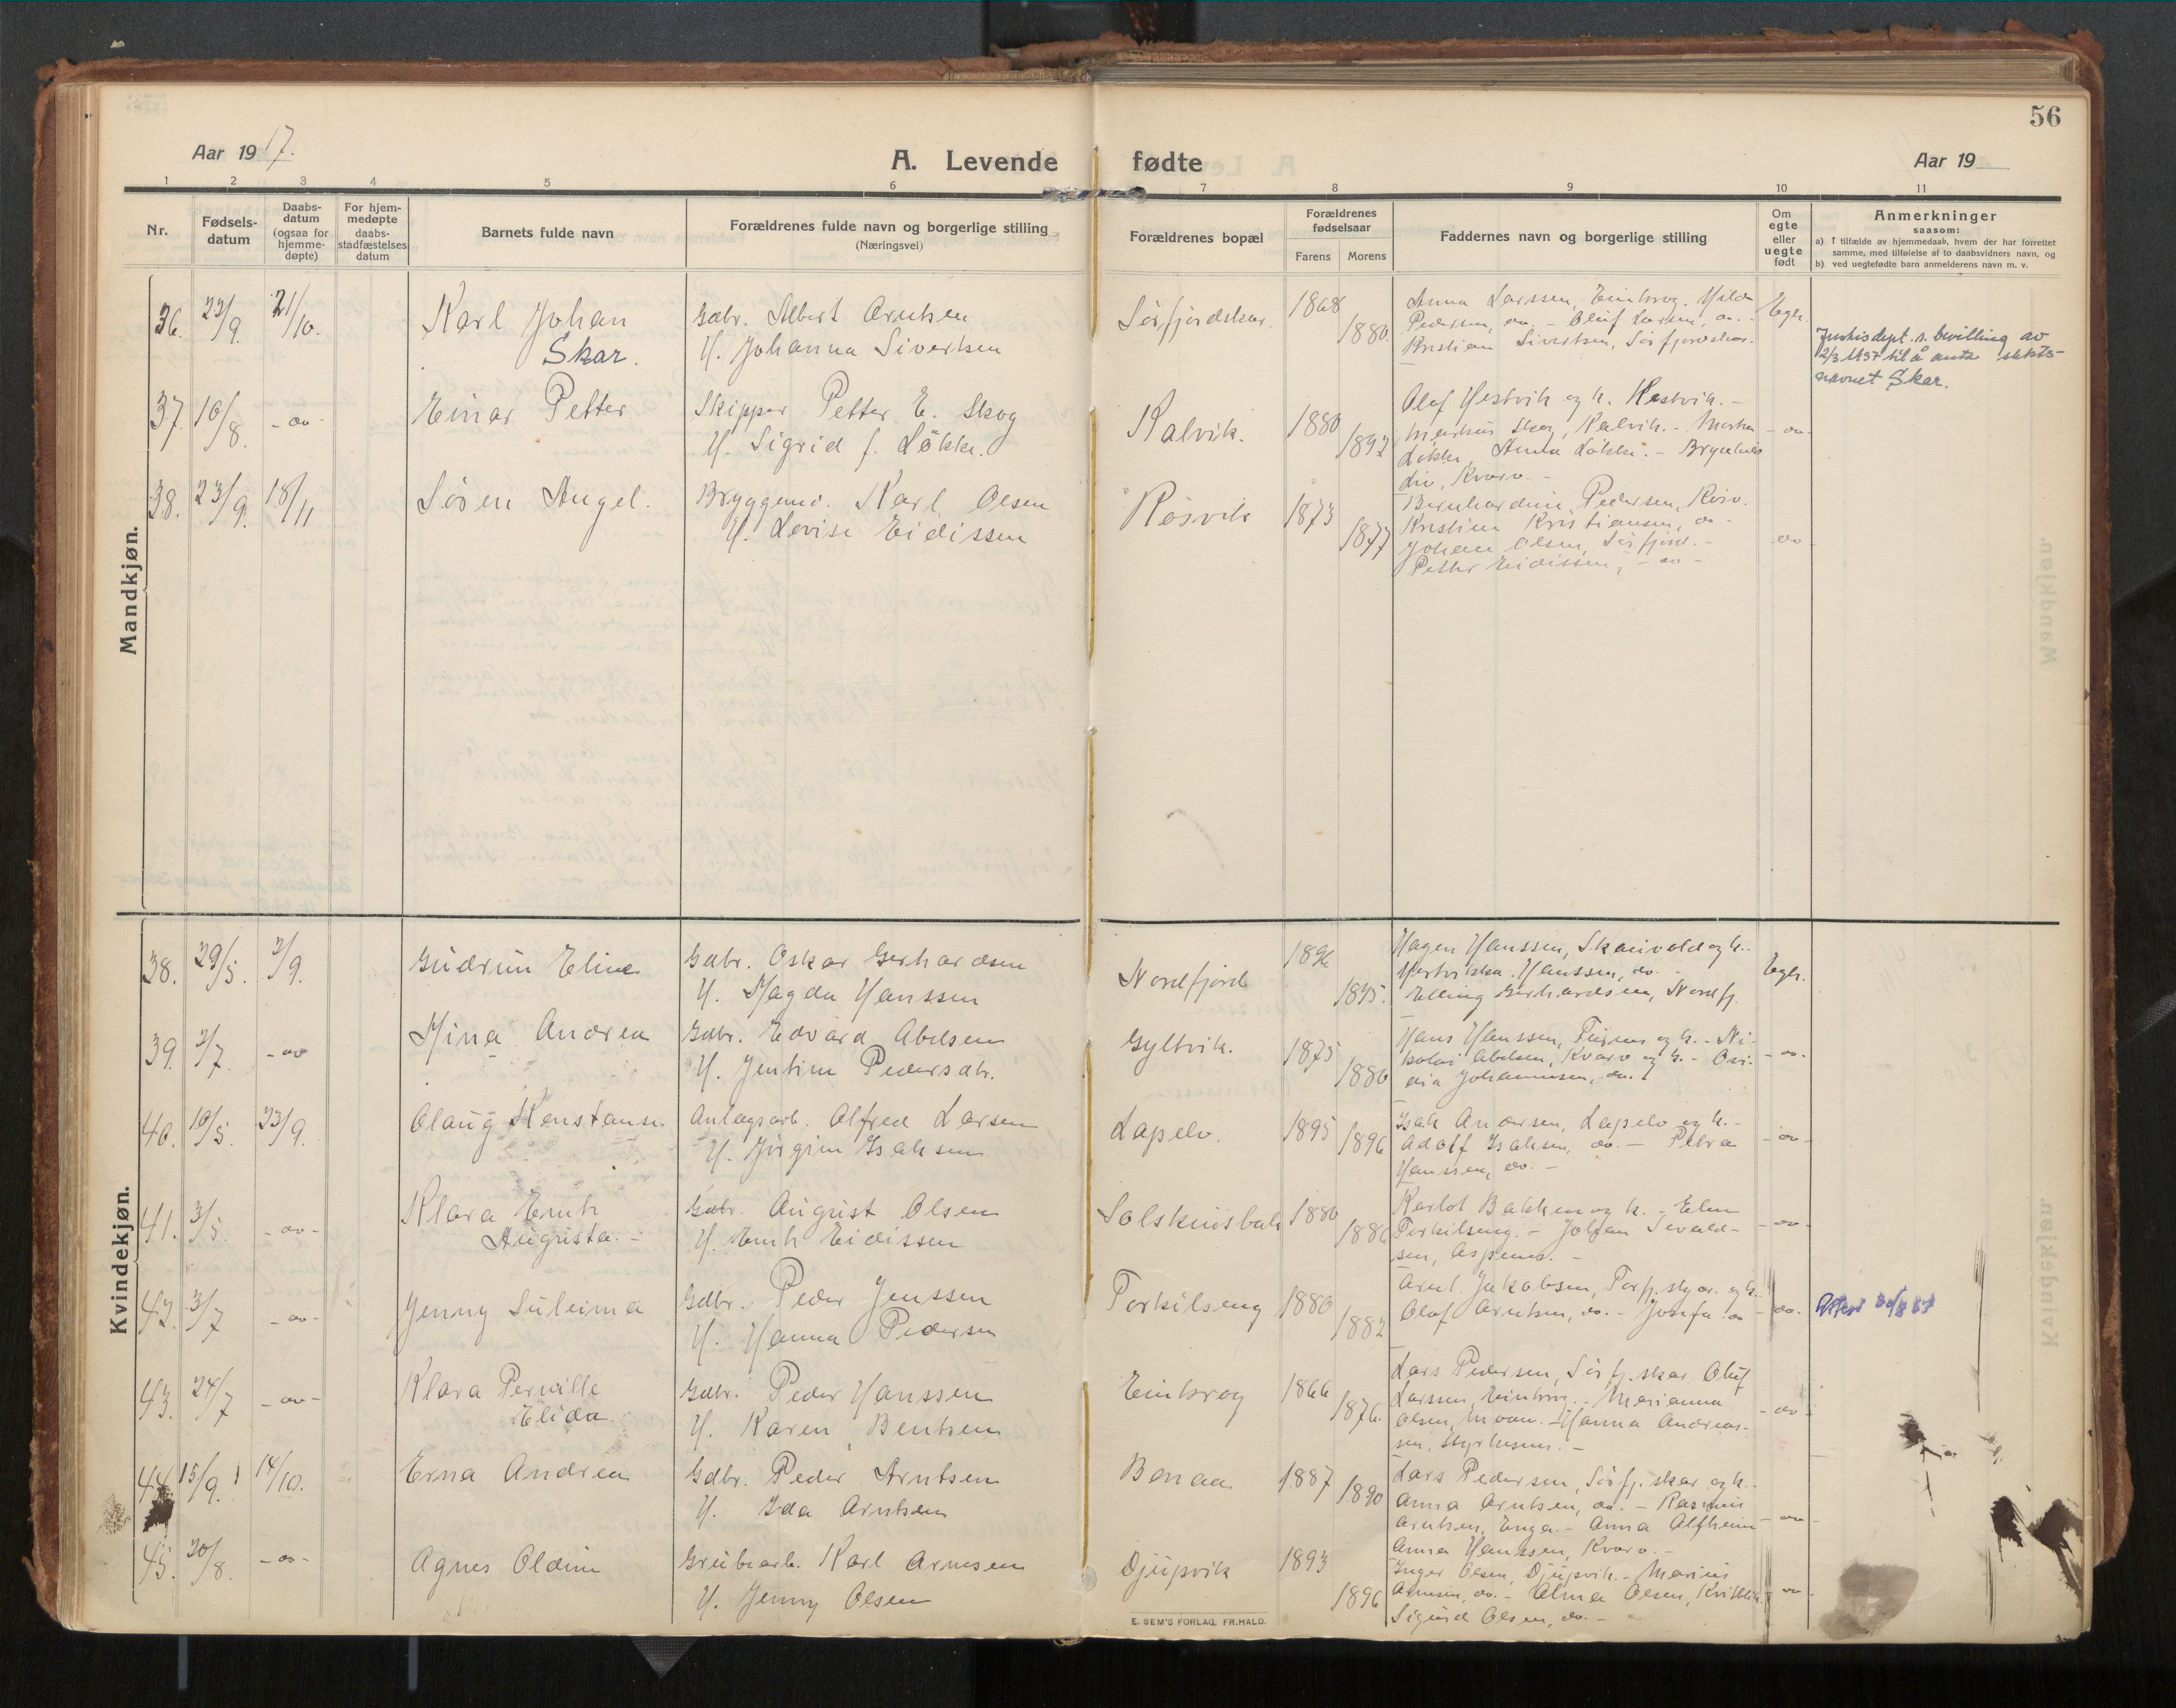 56
Aar 1917.
A. Levende fødte
Aar 19
1 2 3 4 5 6 7 8 9 10 11
Nr.
Fødsels-
datum
Daabs-
datum
(ogsaa for
hjemme-
døpte)
For hjem-
medøpte
daabs-
stadfæstelses
datum
Barnets fulde navn
Forældrenes fulde navn og borgerlige stilling
(Næringsvei)
Forældrenes bopæl
Forældrenes
fødselsaar
Farens Morens
Faddernes navn og borgerlige stilling
Om
egte
eller
uegte
født
Anmerkninger
saasom:
a) I tilfælde av hjemmedaab, hvem der har forrettet
samme, med tilføielse af to daabsvidners navn, og
b) ved uegtefødte barn anmelderens navn m. v.
Mandkjøn.
36. 23/9. 21/10.
Karl Johan
Skar.
Gdbr. Albert Arntsen
H. Johanna Sivertsen
Sørfjordskar.
1868
1880.
Anna Larssen, Einkrog. Hilda
Pedersen, do. - Oluf Larsen, do. -
Kristian Sivertsen, Sørfjordskar.
Egte.
Justisdept.s. bevilling av
2/3 1937 til å anta slekts-
navnet Skar.
37. 16/8. - do -
Einar Petter
Skipper Petter E. Skog
H. Sigrid f. Løkke.
Kalvik.
1880
1892
Olaf Hestvik og h. Hestvik. -
Skog, Kalvik. -
Løkke, Anna Løkke. -
Kvarv. -
- do -
38. 23/9. 18/11
Søren Angel.
Bryggemd. Karl Olsen
H. Lovise Eidissen
Røsvik
1873
1877
Bernhardine Pedersen, Kvarv.
Kristine Kristiansen, do -
Johan Olsen, Sørfjord. -
Petter Eidissen, - do -
do -
Kvindekjøn.
38. 29/5. 2/9.
Gudrun Eline
Gdbr. Oskar Gerhardsen
H. Magda Hanssen
Nordfjord
1896
1895.
Hagen Hanssen, Skaivold og h. -
Hanssen, do. -
Elling Gerhardsen, Nordfj.
Egte.
39. 2/7. - do
Mina Andrea
Gdbr. Edvard Abelsen
H. Jentine Pedersdtr.
Gyltvik.
1875
1880
Hans Hanssen, og h. - Ni-
kolai Abelsen, Kvarv og h. -
Johannesen, do.
- do -
40. 10/5. 23/9.
Olaug Konstanse
Anlægsarb. Alfred Larsen
H. Jørgine Isaksen
Lapelv.
1895
1896
Isak Andersen, Lapelv og h. -
Adolf Isaksen, do. - Petra
Hanssen, do. -
- do -
41. 3/5. - do -
Klara Emh
Augusta. -
Gdbr. August Olsen
H. Emh Eidissen
Solskinsbak
1880
1886
Karlot Bakken og h. - Elen
Torkilseng. - Johan Sivald-
sen, Aspenes. -
- do -
42. 3/7 - do -
Jenny Suleima
Gdbr. Peder Jenssen
H. Hanna Pedersen
Torkilseng
1880
1882
Arnt. Jakobsen, og h.
Olaf Arntsen, do. - Josefa do
- do.
Attest 30/8
43. 24/7 - do -
Klara Pernille
Elida
Gdbr. Peder Hanssen
H. Karen Bentsen
Einkrog
1866
1876.
Lars Pedersen, Sørfj.skar Oluf
Larssen, Einkrog. - Marianna
Olsen, Moan. - Hanna Andreas-
sen,
- do -
44 15/9. 14/10.
Erna Andrea
Gdbr. Peder Arntsen
H. Ida Arntsen
Bonaa
1887
1890
Lars Pedersen, Sørfj.skar og h. -
Anna Arntsen, do. - Rasmus
Arntsen, Enga. - Anna Alfheim
- do -
45. 20/8. - do -
Agnes Oldine
Grubearb. Karl Arnesen
H. Jenny Olsen
Djupvik
1893
1896
Anna Hanssen, Kvarv. -
Inger Olsen, Djupvik. - Marius
Arnesen, do. - Alma Olsen,
Sigurd Olsen, do. -
do -
E. SEM'S FORLAG, FR.HALD.